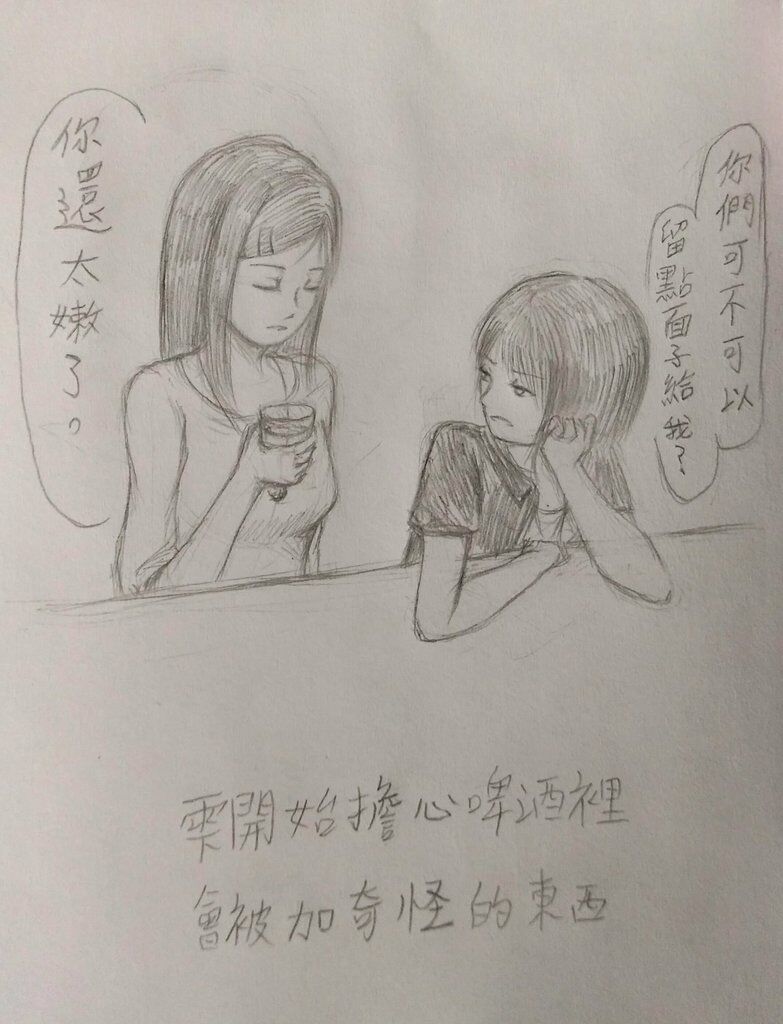 你們可不可以
留點面子給我？
你還太嫩了。
雫開始擔心啤酒裡
會被加奇怪的東西